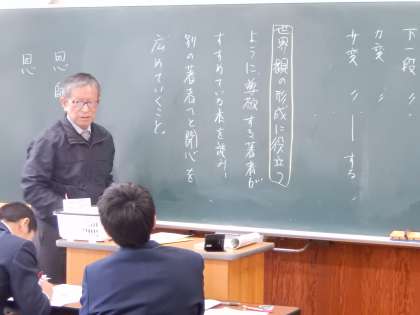 下一段 〃
カ変 〃
サ変 〃 ーする、
世界観の形成に役立つ
ように、尊敬する著者が
すすめている本を読み、
別の著者へと関心を
広めていくこと。
恩師
恩